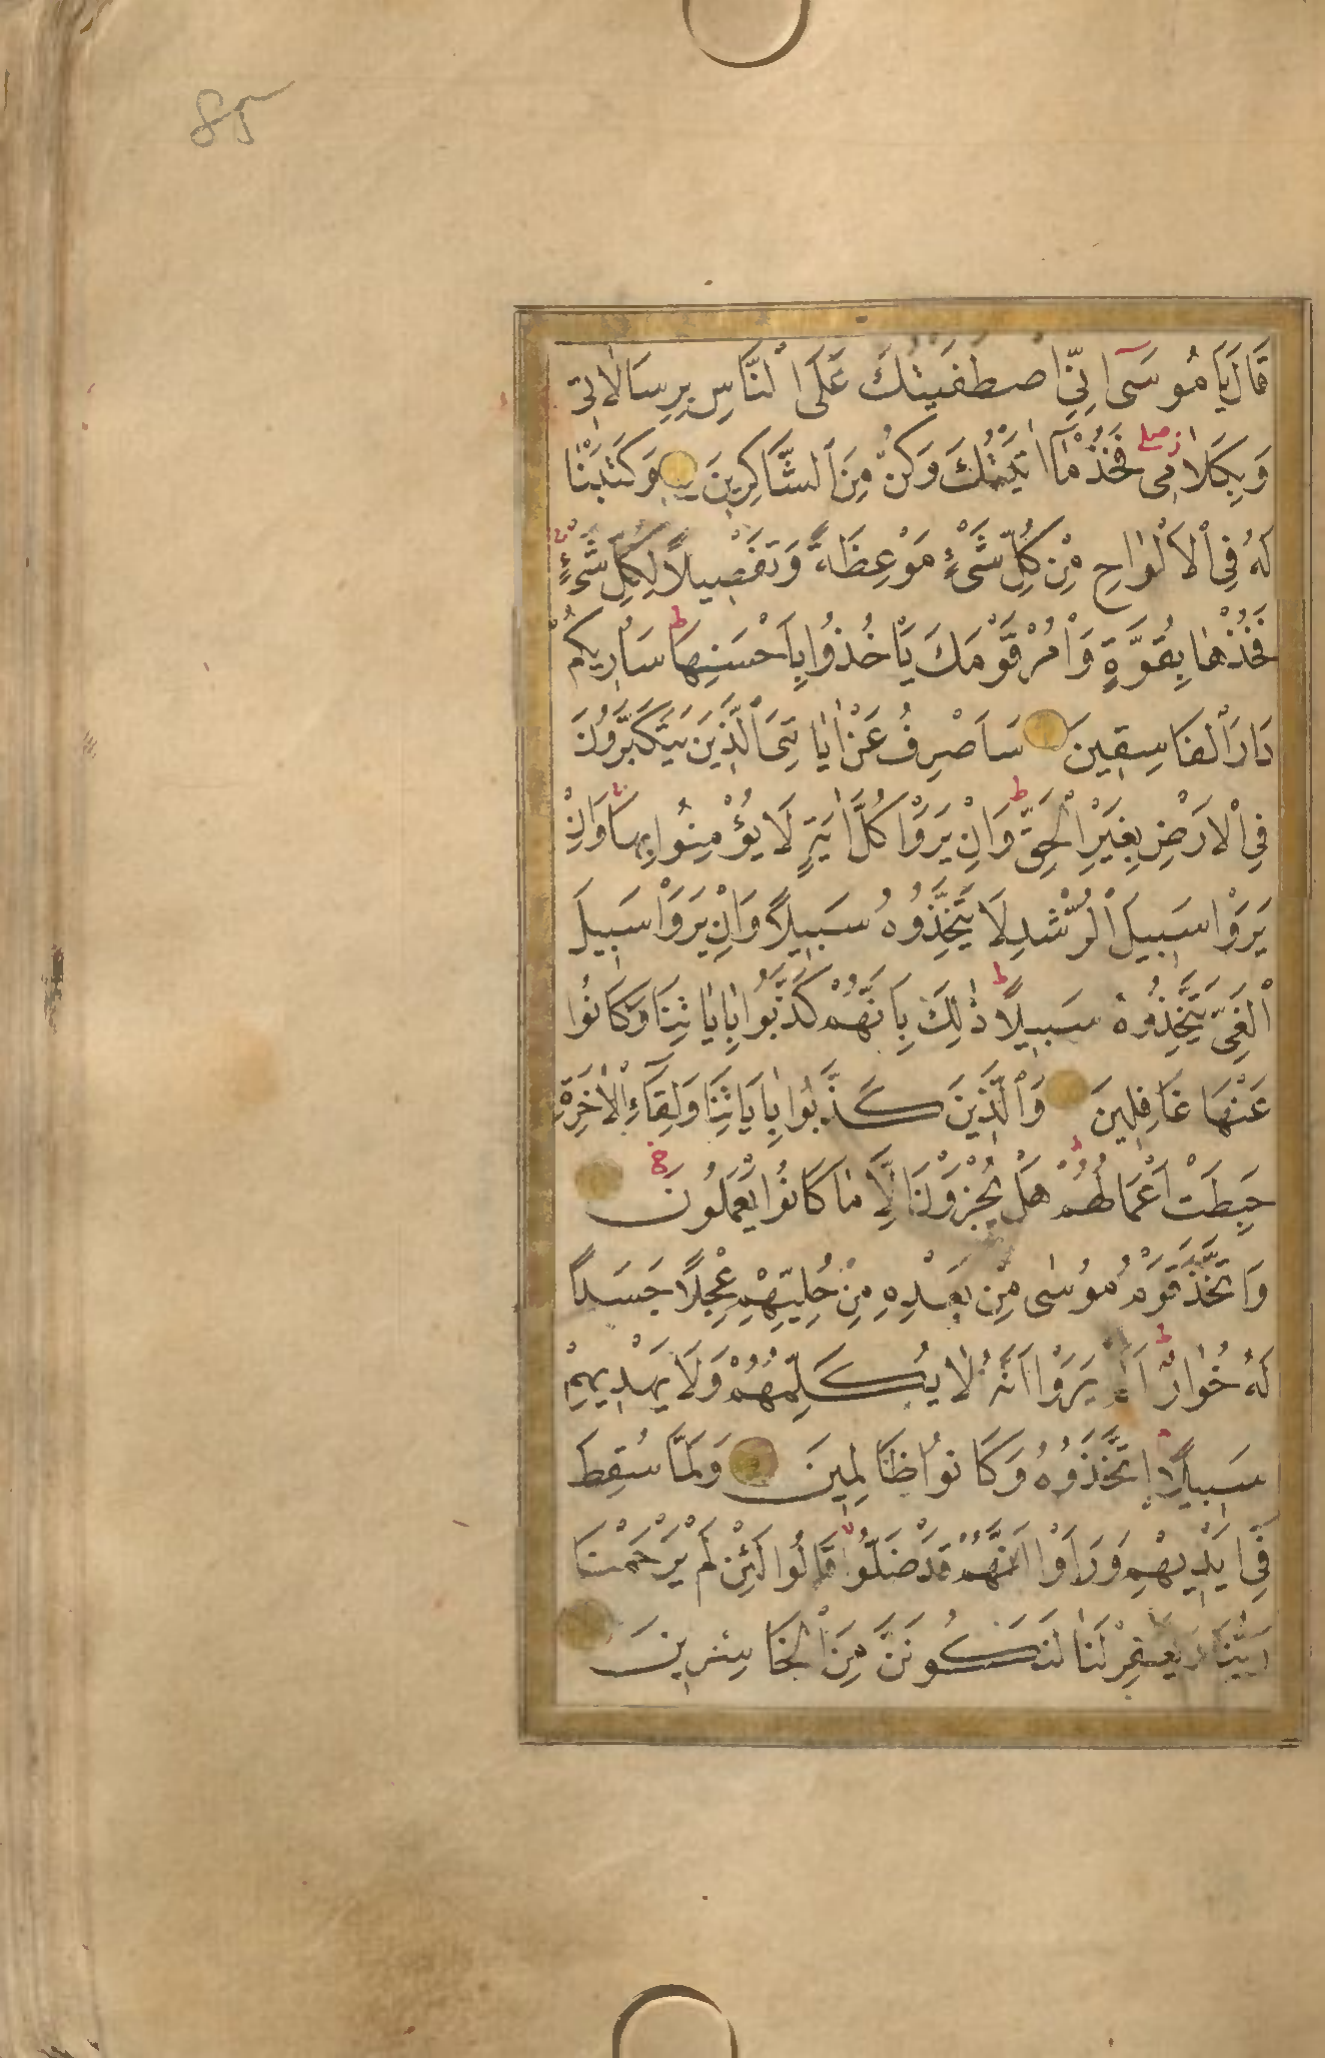 85
قَالَ يَا مُوسَىٓ اِنِّي اصْطَفَيْتُكَ عَلَى النَّاسِ بِرِسَالَاتِي
وَبِكَلَامِي فَخُذْ مَآ اٰتَيْتُكَ وَكُنْ مِنَ الشَّاكِرِينَ وَكَتَبْنَا
لَهُ فِي الْاَلْوَاحِ مِنْ كُلِّ شَيْءٍ مَوْعِظَةً وَتَفْصِيلًا لِكُلِّ شَيْءٍ
فَخُذْهَا بِقُوَّةٍ وَاْمُرْ قَوْمَكَ يَاْخُذُوا بِاَحْسَنِهَا سَاُرِيكُمْ
دَارَ الْفَاسِقِينَ سَاَصْرِفُ عَنْ اٰيَاتِيَ الَّذِينَ يَتَكَبَّرُونَ
فِي الْاَرْضِ بِغَيْرِ الْحَقِّ وَاِنْ يَرَوْا كُلَّ اٰيَةٍ لَا يُؤْمِنُوا بِهَا وَاِنْ
يَرَوْا سَبِيلَ الرُّشْدِ لَا يَتَّخِذُوهُ سَبِيلًا وَاِنْ يَرَوْا سَبِيلَ
الْغَيِّ يَتَّخِذُوهُ سَبِيلًا ذٰلِكَ بِاَنَّهُمْ كَذَّبُوا بِاٰيَاتِنَا وَكَانُوا
عَنْهَا غَافِلِينَ وَالَّذِينَ كَذَّبُوا بِاٰيَاتِنَا وَلِقَآءِ الْاٰخِرَةِ
حَبِطَتْ اَعْمَالُهُمْ هَلْ يُجْزَوْنَ اِلَّا مَا كَانُوا يَعْمَلُونَ
وَاتَّخَذَ قَوْمُ مُوسٰى مِنْ بَعْدِهِ مِنْ حُلِيِّهِمْ عِجْلًا جَسَدًا
لَهُ خُوَارٌ اَلَمْ يَرَوْا اَنَّهُ لَا يُكَلِّمُهُمْ وَلَا يَهْدِيهِمْ
سَبِيلًا اِتَّخَذُوهُ وَكَانُوا ظَالِمِينَ وَلَمَّا سُقِطَ
فِيٓ اَيْدِيهِمْ وَرَاَوْا اَنَّهُمْ قَدْ ضَلُّوا قَالُوا لَئِنْ لَمْ يَرْحَمْنَا
رَبُّنَا وَيَغْفِرْ لَنَا لَنَكُونَنَّ مِنَ الْخَاسِرِينَ